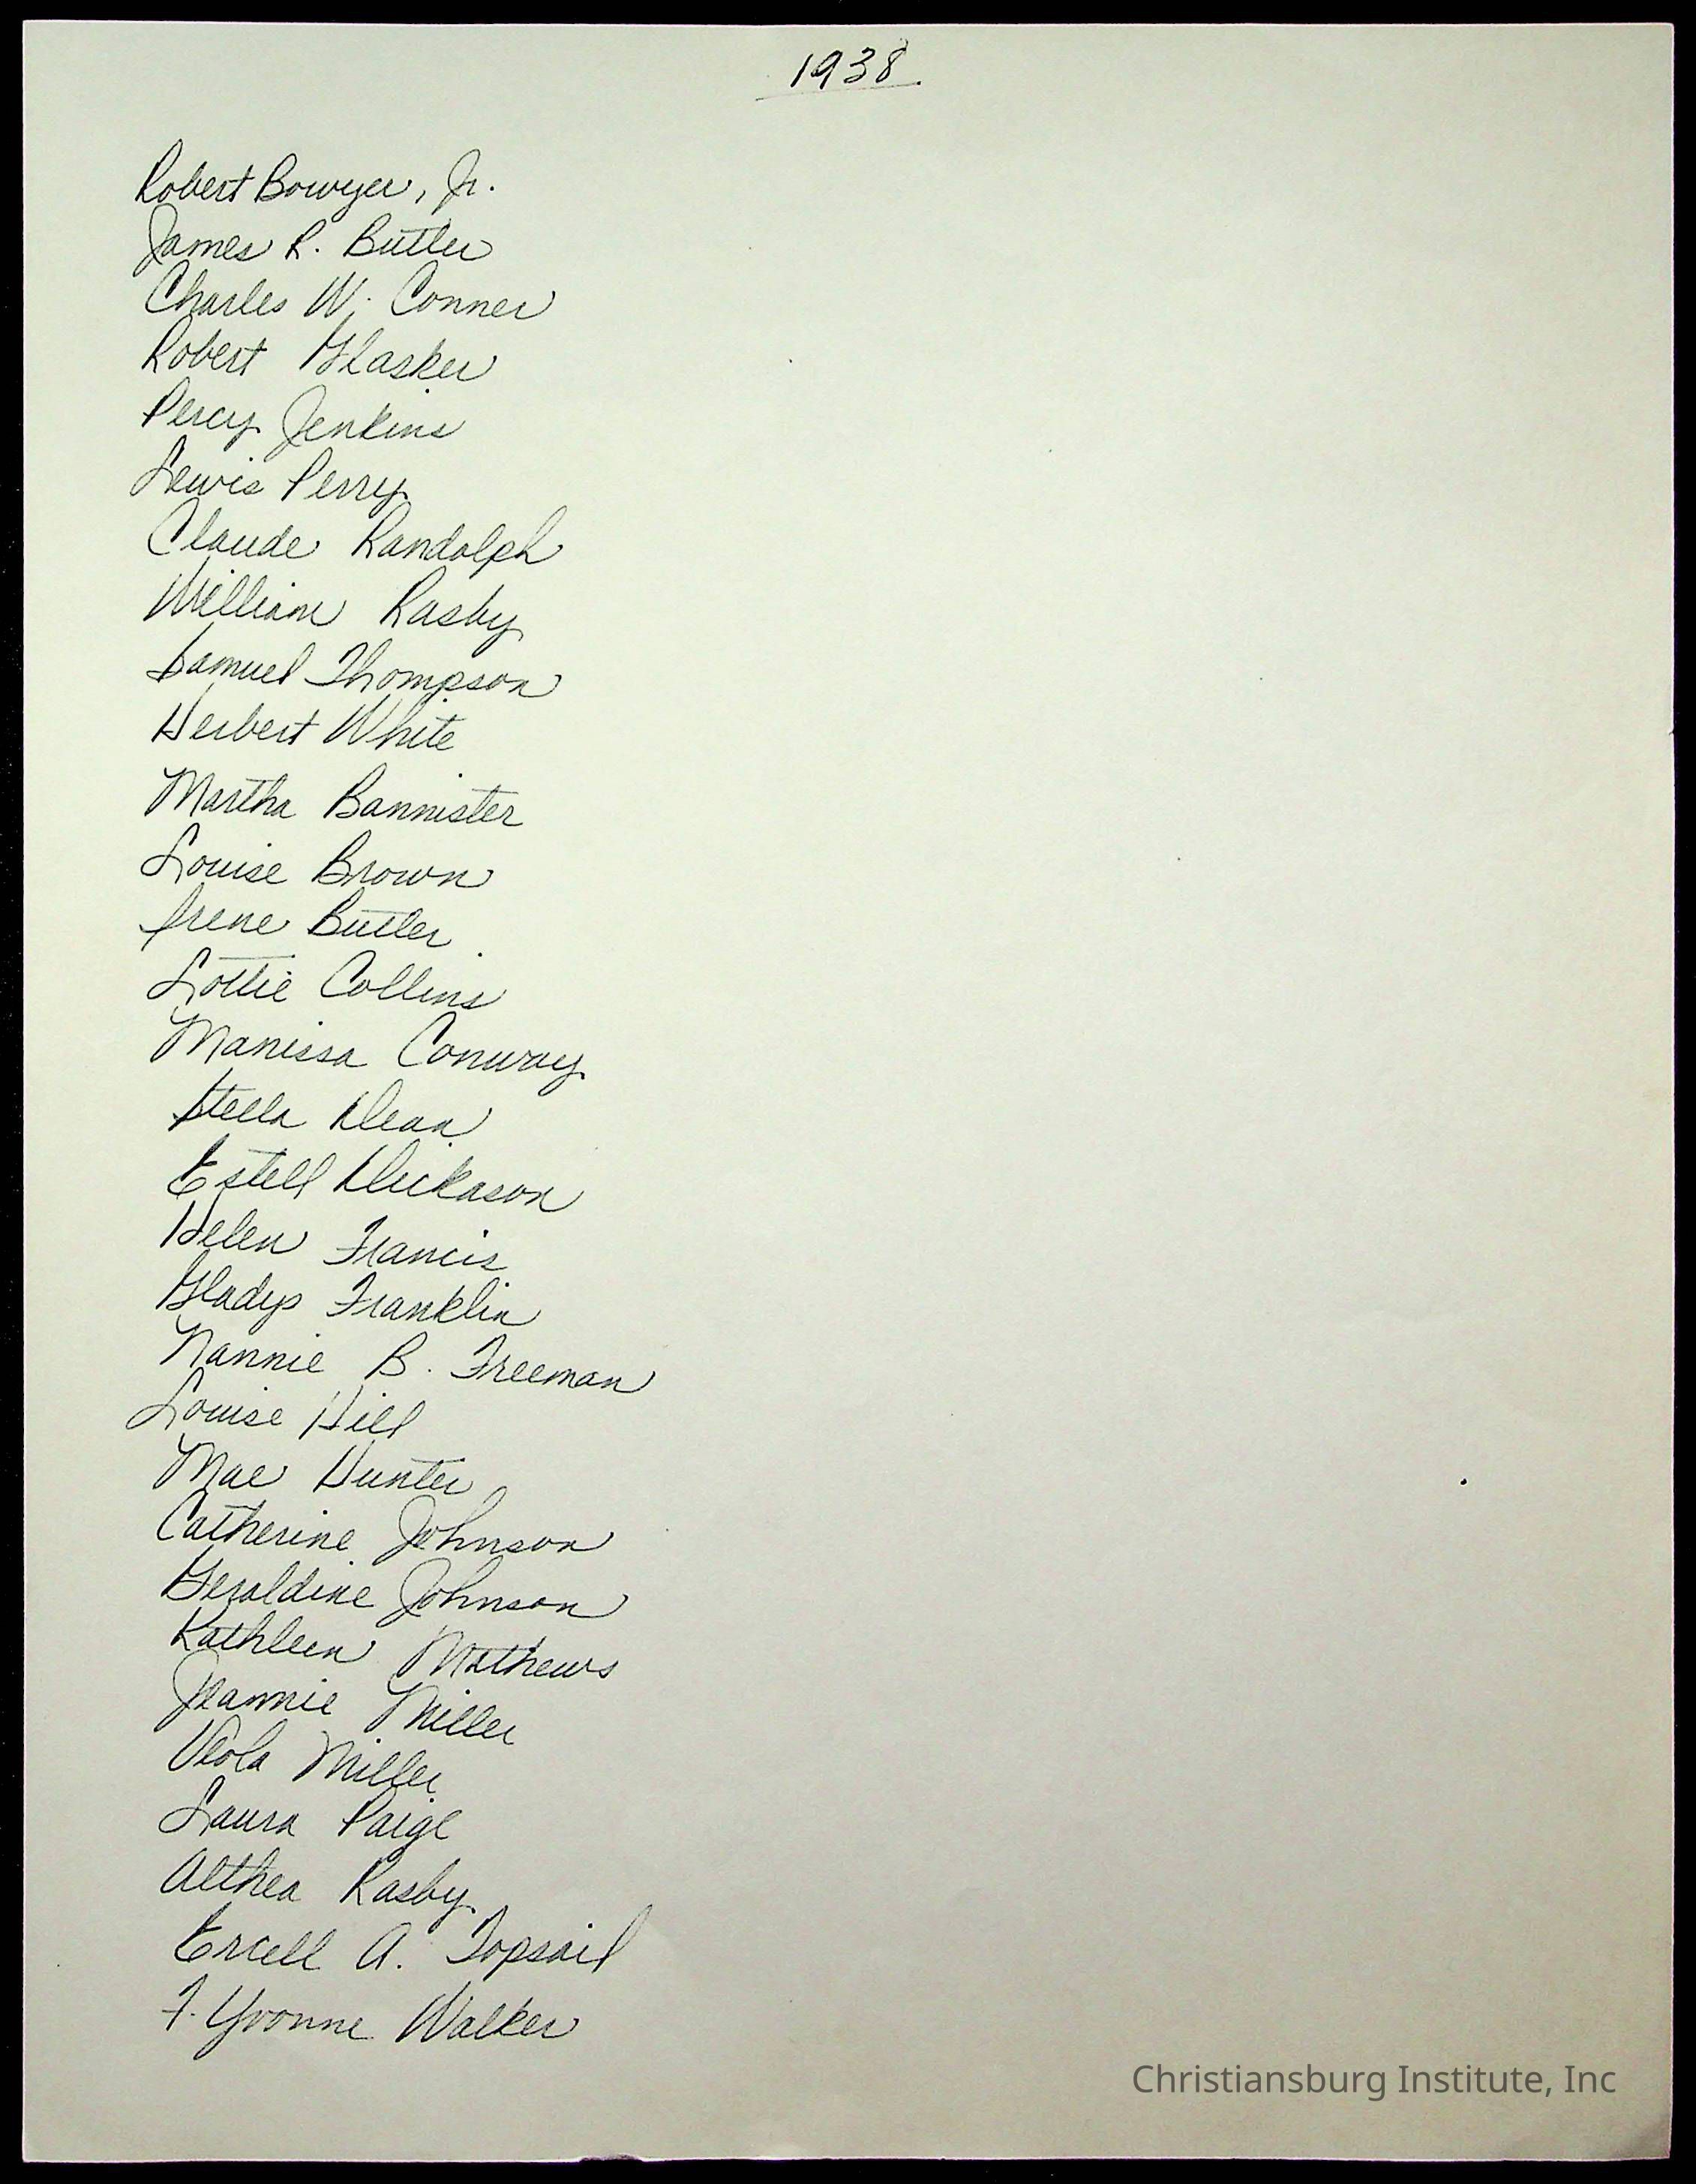 1938
Robert Bowyer, Jr.
James R. Butler
Charles W. Conner
Robert Glasker
Percy Jenkins
Lewis Perry
Claude Randolph
William Rasby
Samuel Thompson
Herbert White
Martha Bannister
Louise Brown
Irene Butler
Lottie Collins
Manissa Conway
Stella Dean
Estell Dickason
Helen Francis
Gladys Franklin
Nannie B. Freeman
Louise Hill
Mae Hunter
Catherine Johnson
Geraldine Johnson
Kathleen Mathews
Jeannie Miller
Veola Miller
Laura Paige
Althea Rasby
Ercell A. Topsail
F. Yvonne Walker
Christiansburg Institute, Inc